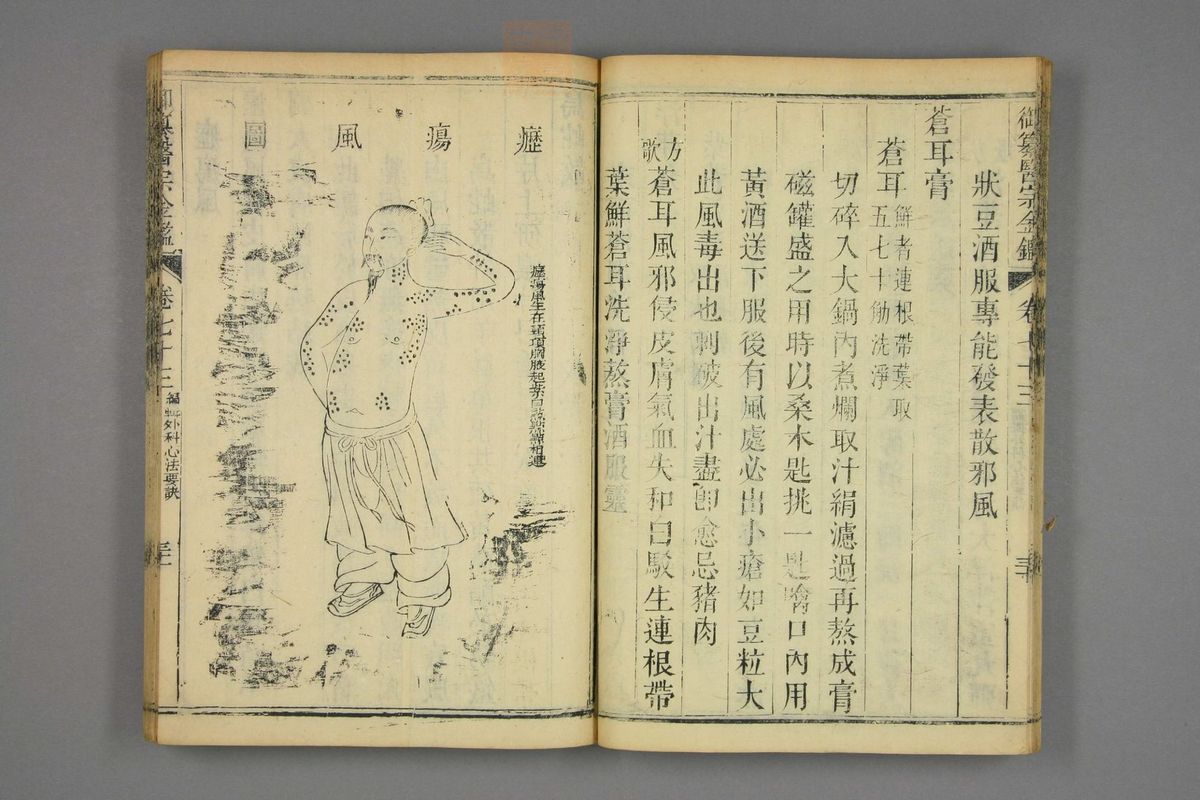 御纂醫宗金鑑 卷七十三
狀豆酒服專能發表散邪風
蒼耳膏
蒼耳鮮者連根帶葉取
五七十觔洗淨
切碎入大鍋內煮爛取汁絹濾過再熬成膏
磁罐盛之用時以桑木匙挑一匙噙口內用
黃酒送下服後有風處必出小瘡如豆粒大
此風毒出也刺破出汁盡卽愈忌豬肉
方歌 蒼耳風邪侵皮膚氣血失和白駁生連根帶
葉鮮蒼耳洗淨蒸膏酒服靈
癧瘍風圖
癧瘍風生在頸項胸腋起紫白點點點相連
御纂醫宗金鑑 卷七十三 編輯外科心法要訣